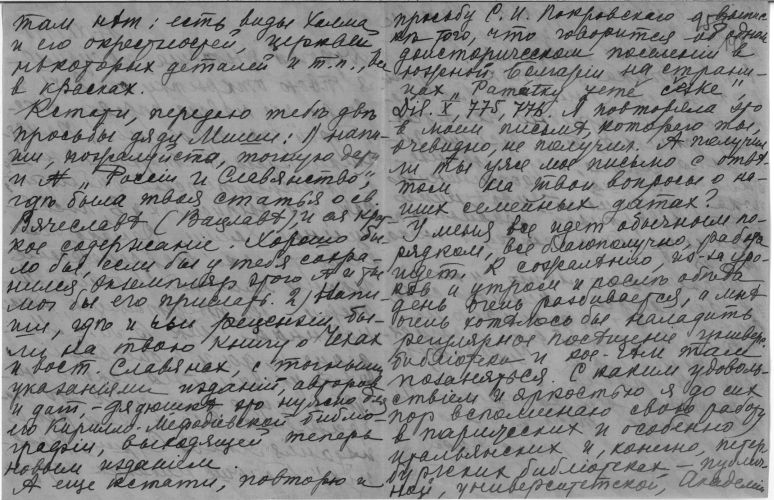 там нѣт: есть виды Холма
и его окрестностей, церквей
нѣкоторых деталей и т.п., все
в красках.
Кстати, передаю тебѣ двѣ
просьбы дяди Миши: 1) напи-
ши, пожалуйста, точную дату
и № „Россіи и Славянство",
гдѣ была твоя статья о св.
Вячеславѣ (Вацлавѣ), и ея крат
кое содержаніе. Хорошо бы
ло бы, если бы у тебя сохра-
нился экземпляр этого № и ты
мог бы его прислать. 2) Напи-
ши, гдѣ и чьи рецензіи бы-
ли на твою книгу о Чехах
и вост. Славянах, с точными
указаніями изданій, авторов
и дат, – дядюшкѣ это нужно для
его Кирилло-Меѳодіевской библіо-
графіи, выходящей теперь
новым изданіем.
А еще кстати, повторю и
просьбу С. И. Покровского
того, что говорится об одном
доисторическом поселеніи в
южной Болгаріи на страни-
цах „Památky
Díl. X, 775, 776. Я повторяла это
в моем письмѣ, которого ты,
очевидно, не получил. А получил
ли ты уже мое письмо с отвѣ-
том на твои вопросы о на-
ших семейных датах?
У меня все идет обычным по-
рядком, все благополучно, работа
идет. К сожалѣнію, из-за уро-
ков и утром и послѣ обѣда
день очень разбивается, а мнѣ
очень хотѣлось бы наладить
регулярное посѣщеніе универс.
библіотеки и кое-чѣм там
позаняться. С каким удоволь-
ствіем и яркостью я до сих
пор вспоминаю свою работу
в парижских и особенно
итальянских и, конечно, петер
бургских библіотеках – публич-
ной, университетской, Академіи